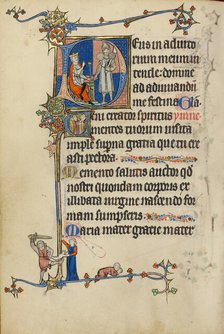 Deus in adiuto
rium meum in
tende: domine
ad adiuuandu
me festina Gla
Ueni creator spiritus ympne
mentes tuorum uisita
imple superna gratia que tu cre
asti pectora.
Memento salutis auctor qd
nostri quondam corporis ex
illibata uirgine nascendo for
mam sumpseris.
Maria mater gracie mater